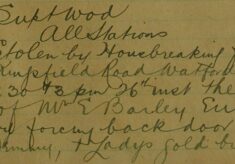 Supt Wod
All Stations
Stolen by Housebreaking
Kingsfield Road Watford
230 & 3 pm 26th inst the
of Mr E Barley
forcing back door
& Ladys gold